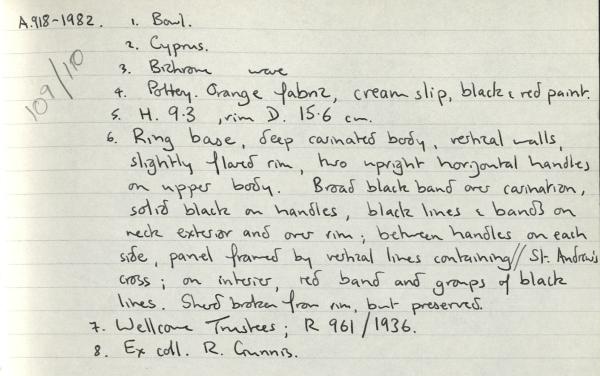 A.918-1982. 1. Bowl.
2. Cyprus.
3. Bichrome ware
109/110
4. Pottery. Orange fabric, cream slip, black & red paint.
5. H. 9.3, rim D. 15.6 cm.
6. Ring base, deep carinated body, vertical walls,
slightly flared rim, two upright horizontal handles
on upper body. Broad black band over carination,
solid black on handles, black lines & bands on
neck exterior and over rim; between handles on each
side, panel framed by vertical lines containing // St. Andrew's
cross; on interior, red band and groups of black
lines. Sherd broken from rim, but preserved.
7. Wellcome Trustees; R 961/1936.
8. Ex coll. R. Gunnis.